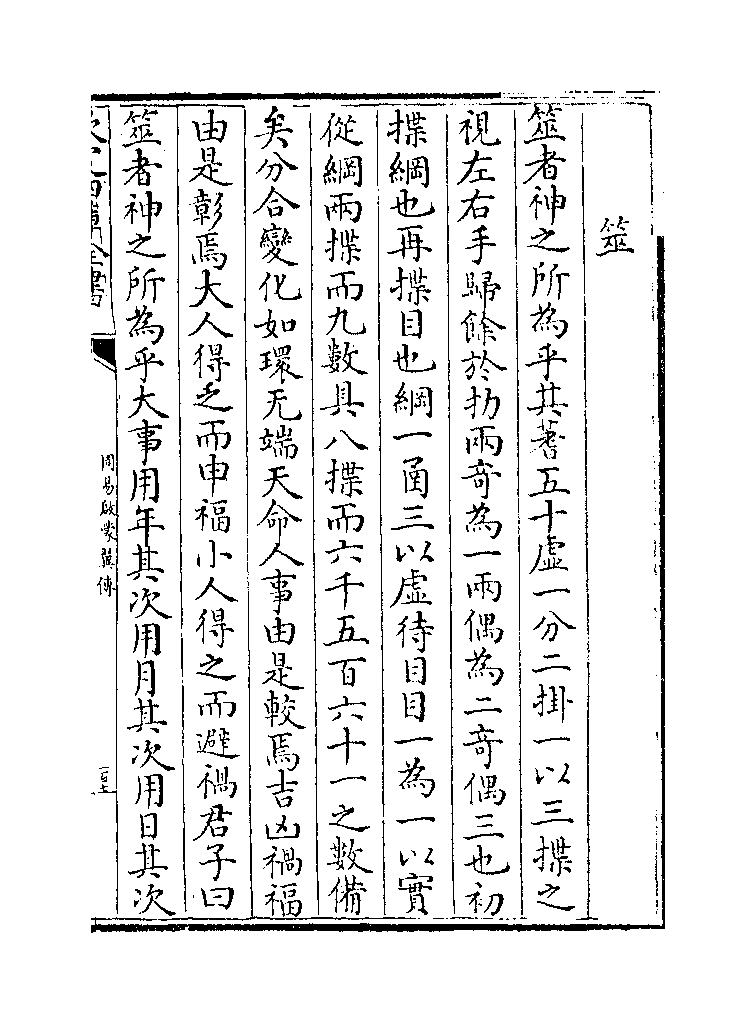 筮
筮者神之所為乎其蓍五十虛一分二掛一以三揲之
視左右手歸餘於扐兩奇為一兩偶為二奇偶三也初
揲綱也再揲目也綱一函三以虛待目目一為一以實
從綱兩揲而九數具八揲而六千五百六十一之數備
矣分合變化如環无端天命人事由是較焉吉凶禍福
由是彰焉大人得之而申福小人得之而避禍君子曰
筮者神之所為乎大事用年其次用月其次用日其次
周易啟蒙翼傳